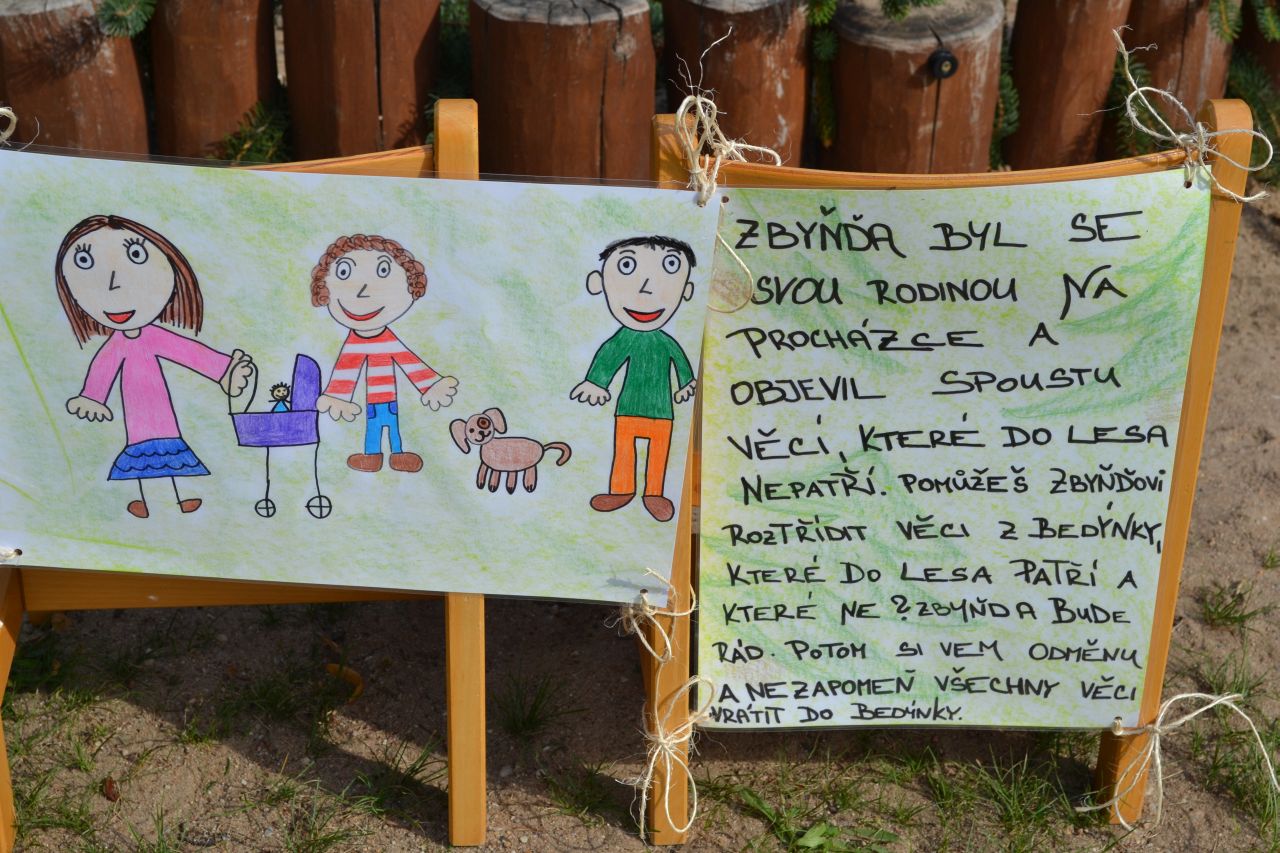 ZBYŇĎA BYL SE
SVOU RODINOU NA
PROCHÁZCE A
OBJEVIL SPOUSTU
VĚCÍ, KTERÉ DO LESA
NEPATŘÍ. POMŮŽEŠ ZBYŇĎOVI
ROZTŘÍDIT VĚCI Z BEDÝNKY,
KTERÉ DO LESA PATŘÍ A
KTERÉ NE? ZBYŇĎA BUDE
RÁD. POTOM SI VEM ODMĚNU
A NEZAPOMEŇ VŠECHNY VĚCI
VRÁTIT DO BEDÝNKY.